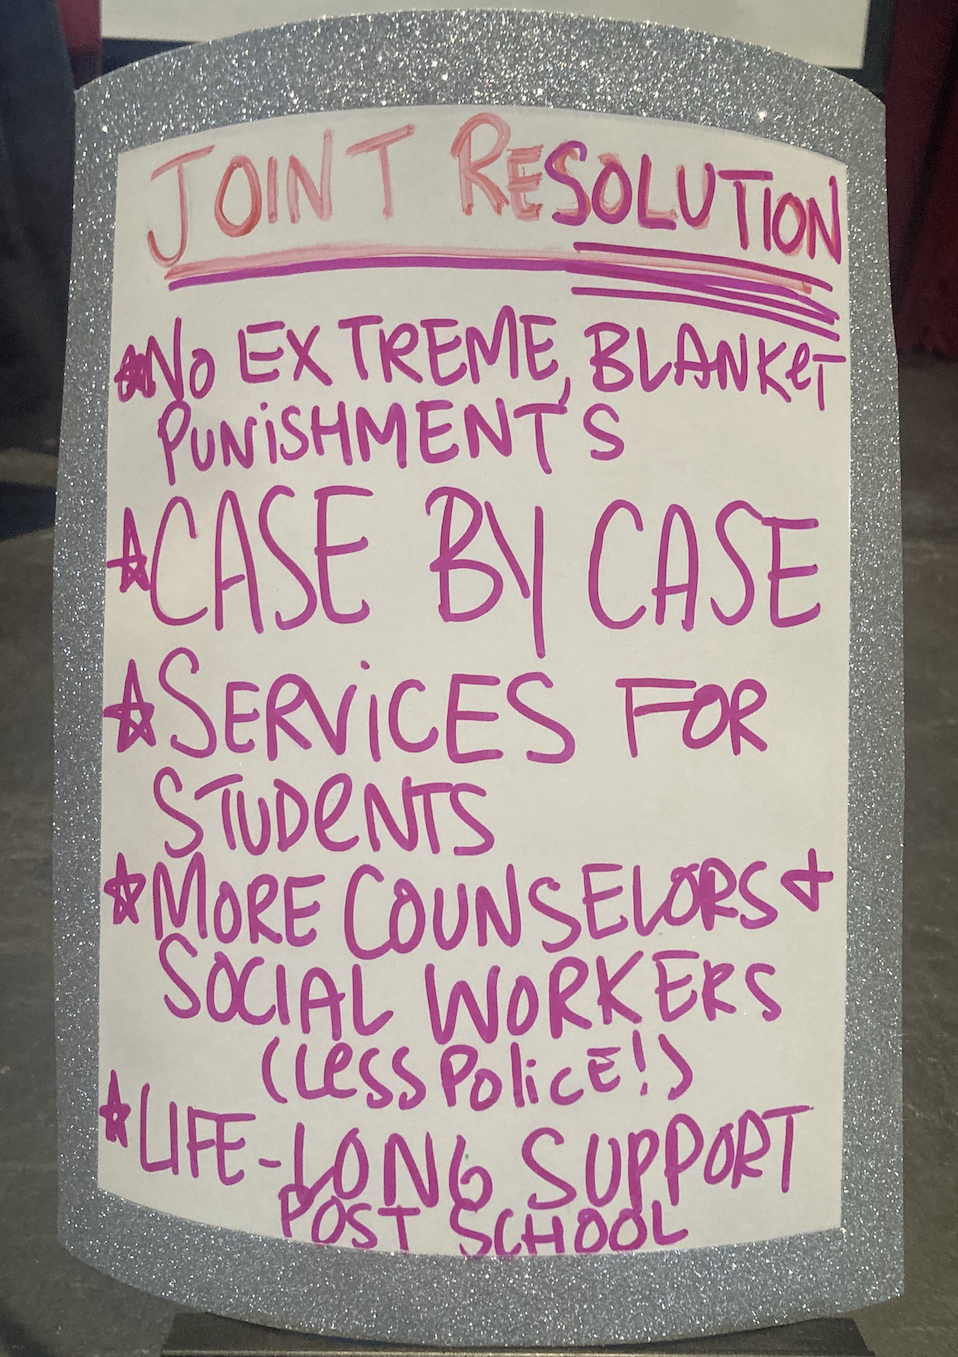 JOINT RESOLUTION
☆No EXTREME, BLANKeT
PUNiSHMENTS
☆CASE BY CASE
☆SERViCES FOR
STUDeNTS
☆MORE COUNSELORS +
SOCIAL WORKERS
(LeSS PoliCE!)
☆LIFE-LONG SUPPORT
POST SCHOOL